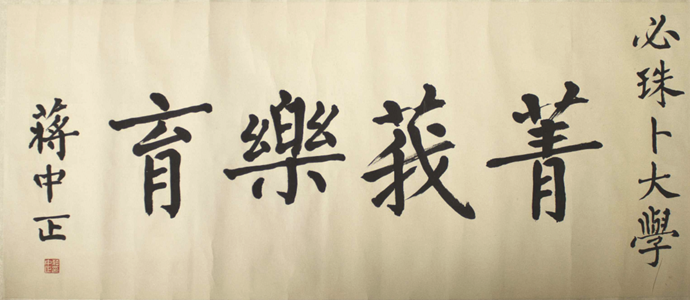 必珠卜大學
菁莪樂育
蔣中正